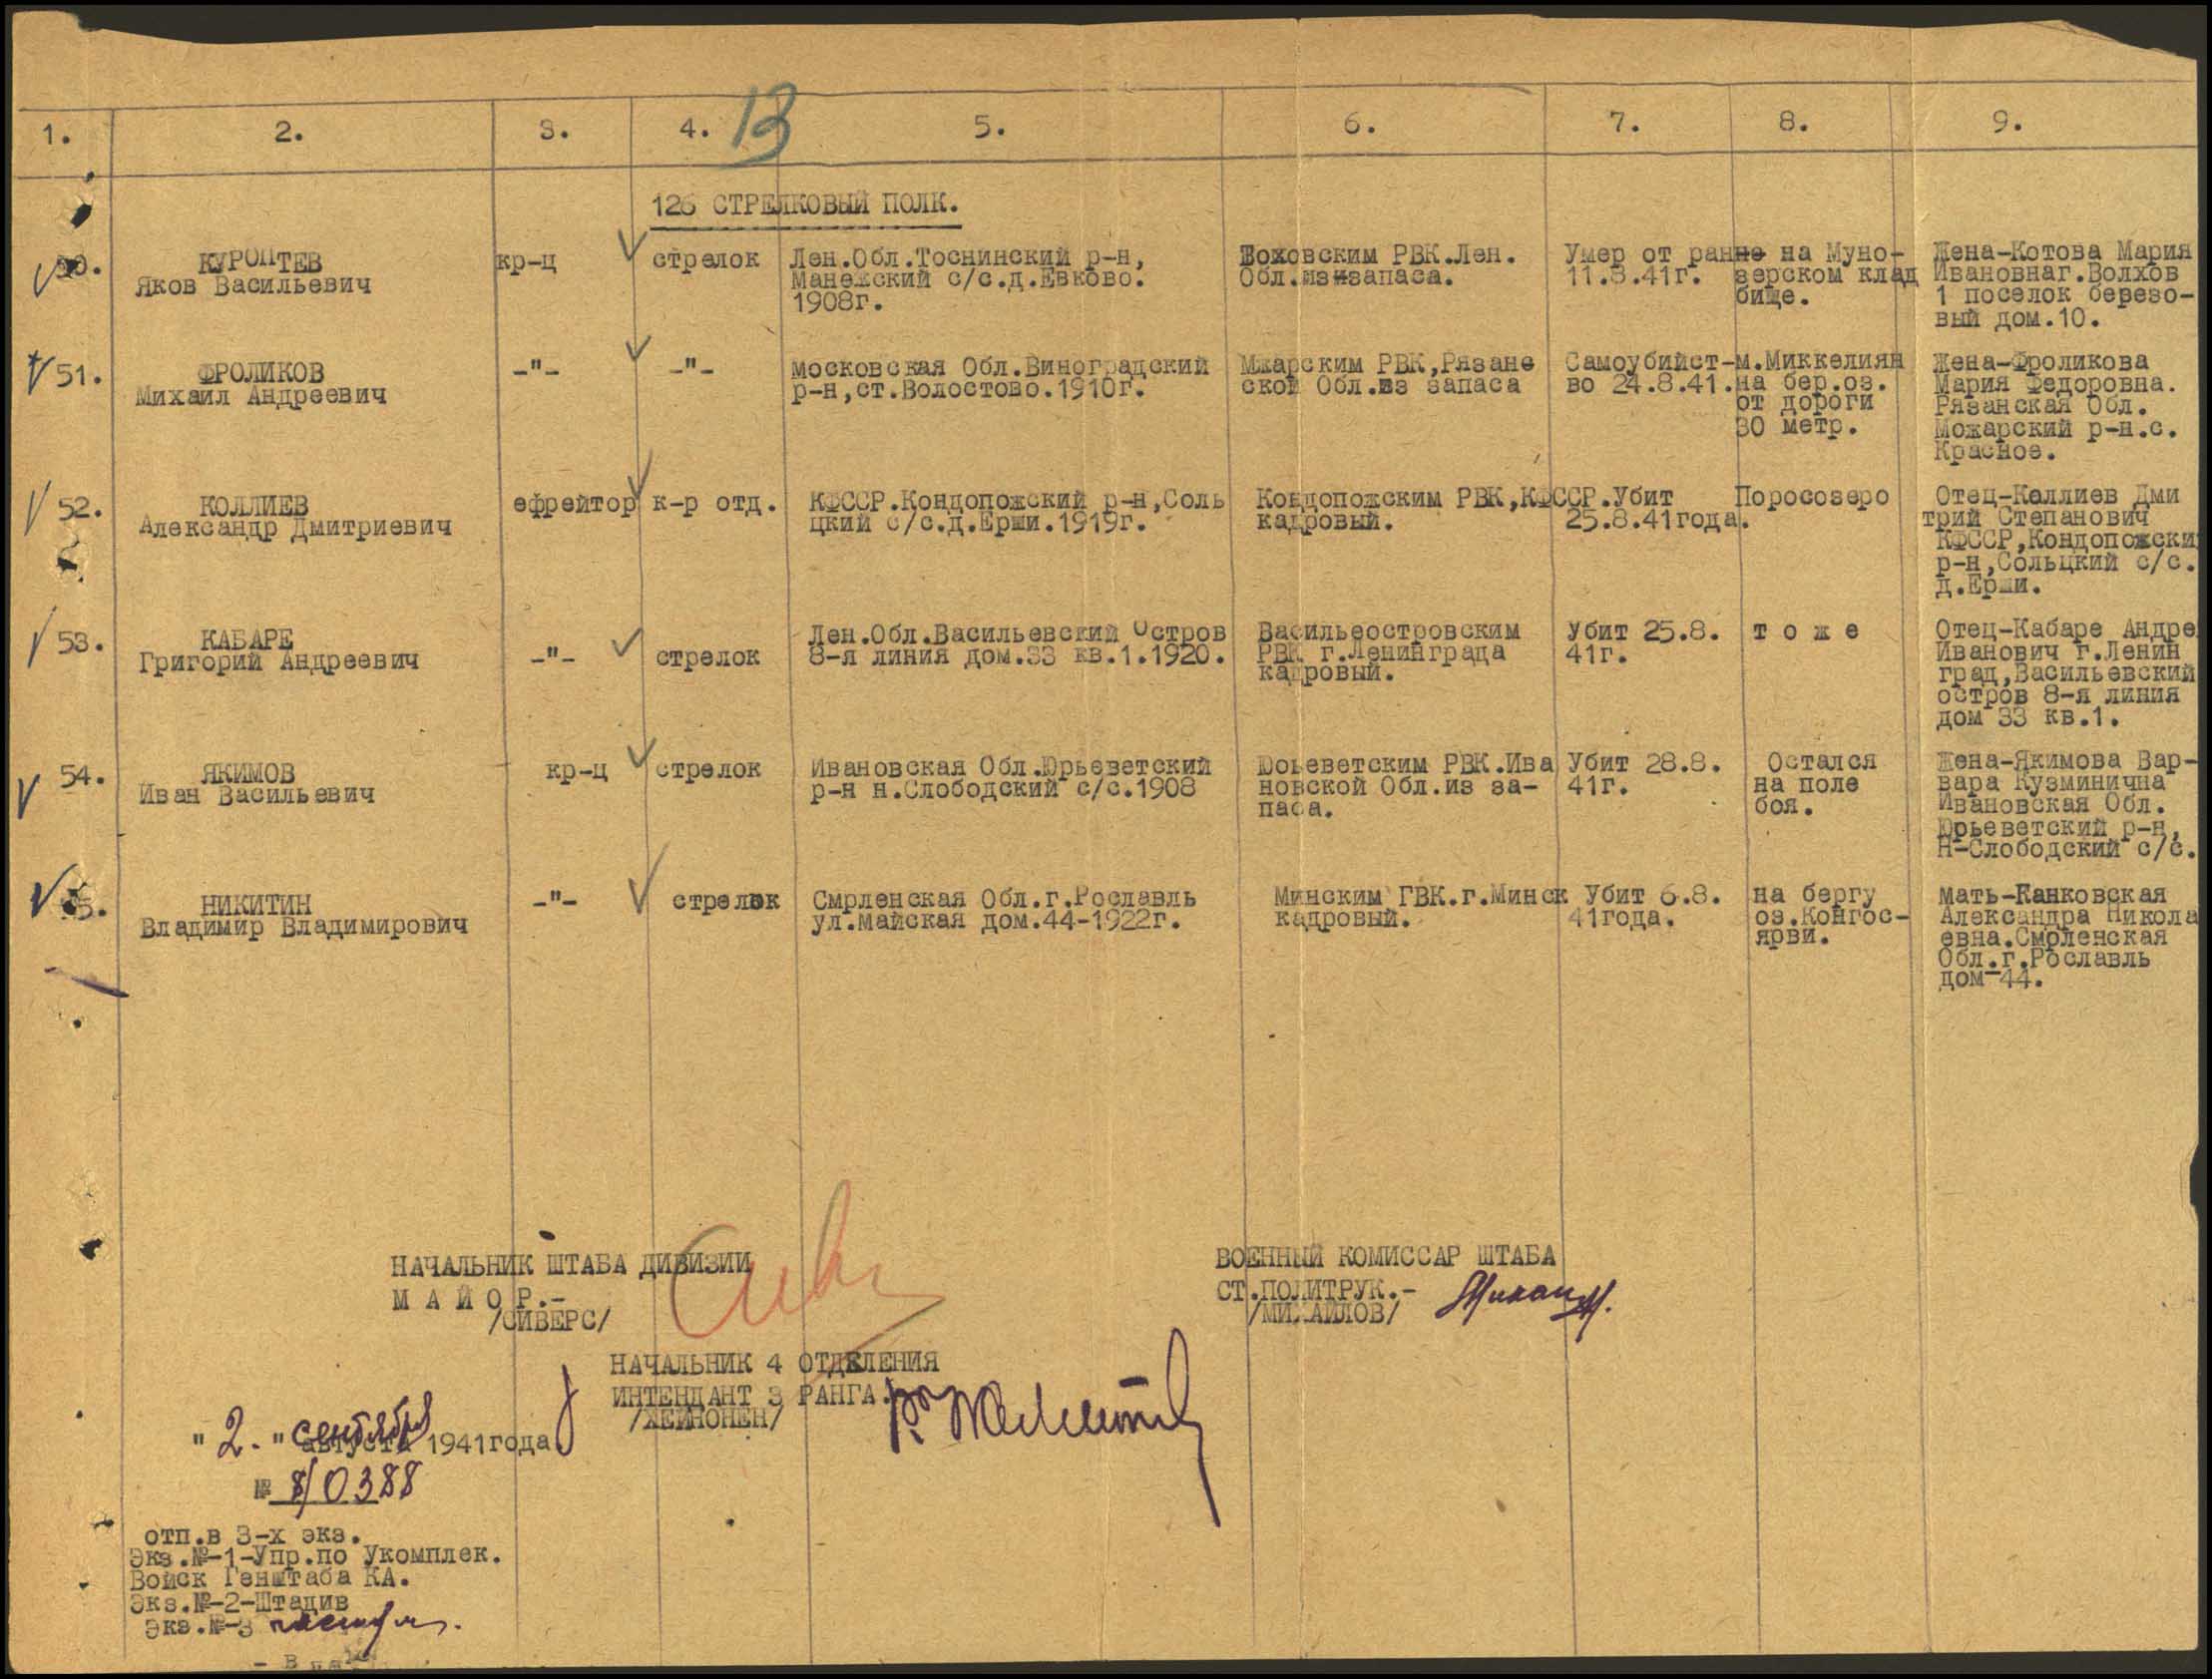 13
1. 2. 3. 4. 5. 6. 7. 8. 9.
126 СТРЕЛКОВЫЙ ПОЛК.
50. КУРОПТЕВ кр-ц стрелок Лен.Обл.Тоснинский р-н, Воховским РВК.Лен. Умер от ранне на Муно- Жена-Котова Мария
Яков Васильевич Манежский с/с.д.Евково. Обл.из запаса. 11.8.41г. зерском клад Ивановнаг.Волхов
1908г. бище. 1 поселок березо-
вый дом.10.
51. ФРОЛИКОВ -"- -"- московская Обл.Виноградский Мжарским РВК,Рязане Самоубийст-м.Миккелиян Жена-Фроликова
Михаил Андреевич р-н,ст.Волостово.1910г. ской Обл.из запаса во 24.8.41.на бер.оз. Мария Федоровна.
от дороги Рязанская Обл.
30 метр. Можарский р-н.с.
Красное.
52. КОЛЛИЕВ ефрейтор к-р отд. КФССР.Кондопожский р-н,Соль Кондопожским РВК,КФССР.Убит Поросозеро Отец-Коллиев Дми
Александр Дмитриевич цкий с/с.д.Ерши.1919г. кадровый. 25.8.41года. трий Степанович
КФССР,Кондопожски
р-н,Сольцкий с/с.
д.Ерши.
53. КАБАРЕ Лен.Обл.Васильевский Остров Васильеостровским Убит 25.8. т о ж е Отец-Кабаре Андре
Григорий Андреевич -"- стрелок 8-я линия дом.33 кв.1.1920. РВК г.Ленинграда 41г. Иванович г.Ленин
кадровый. град,Васильевский
остров 8-я линия
дом 33 кв.1.
54. ЯКИМОВ кр-ц стрелок Ивановская Обл.Юрьеветский Юоьеветским РВК.Ива Убит 28.8. Остался Жена-Якимова Вар-
Иван Васильевич р-н н.Слободский с/с.1908 новской Обл.из за- 41г. на поле вара Кузминична
паса. боя. Ивановская Обл.
Юрьеветский р-н,
Н-Слободский с/с.
55. НИКИТИН -"- стрелок Смрленская Обл.г.Рославль Минским ГВК.г.Минск Убит 6.8. на бергу Мать-Канковская
Владимир Владимирович ул.майская дом.44-1922г. кадровый. 41года. оз.Конгос- Александра Никола
ярви. евна.Смрленская
Обл.г.Рославль
дом-44.
НАЧАЛЬНИК ШТАБА ДИВИЗИИ ВОЕННЫЙ КОМИССАР ШТАБА
М А Й О Р.- СТ.ПОЛИТРУК.-
/СИВЕРС/ /МИХАЙЛОВ/
НАЧАЛЬНИК 4 ОТДЕЛЕНИЯ
ИНТЕНДАНТ 3 РАНГА.
/ХЕЙНОНЕН/
"2." сентября августа 1941года
№ 8/0388
отп.в 3-х экз.
Экз.№-1-Упр.по Укомплек.
Войск Генштаба КА.
Экз.№-2-Штадив
Экз.№-3